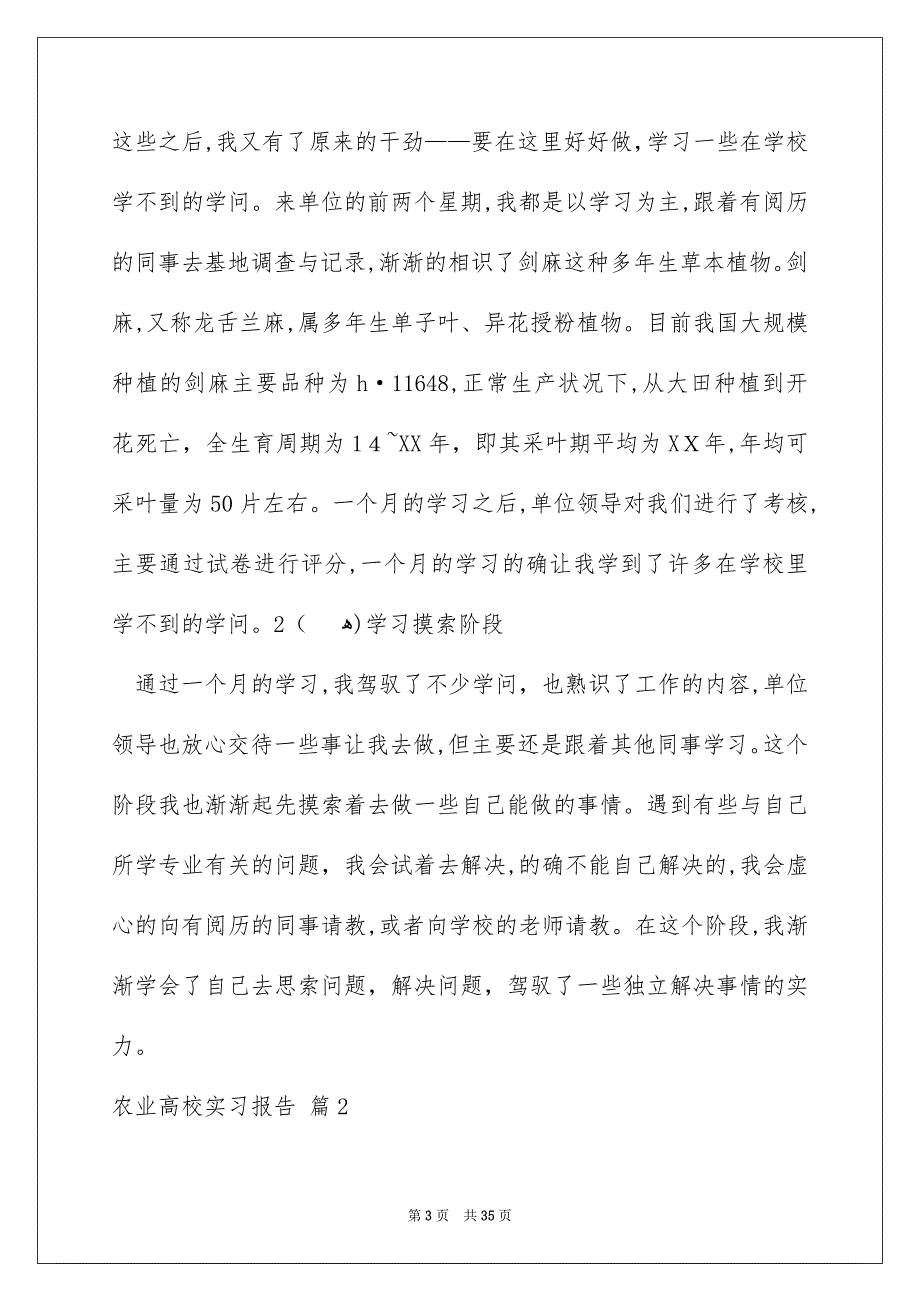 这些之后,我又有了原来的干劲——要在这里好好做，学习一些在学校
学不到的学问。来单位的前两个星期,我都是以学习为主,跟着有阅历
的同事去基地调查与记录,渐渐的相识了剑麻这种多年生草本植物。剑
麻,又称龙舌兰麻,属多年生单子叶、异花授粉植物。目前我国大规模
种植的剑麻主要品种为 h·11648,正常生产状况下,从大田种植到开
花死亡，全生育周期为１４~XX 年，即其采叶期平均为 XＸ年,年均可
采叶量为 50 片左右。一个月的学习之后,单位领导对我们进行了考核,
主要通过试卷进行评分,一个月的学习的确让我学到了许多在学校里
学不到的学问。2（ ﻫ)学习摸索阶段
通过一个月的学习,我驾驭了不少学问，也熟识了工作的内容,单位
领导也放心交待一些事让我去做,但主要还是跟着其他同事学习。这个
阶段我也渐渐起先摸索着去做一些自己能做的事情。遇到有些与自己
所学专业有关的问题，我会试着去解决,的确不能自己解决的,我会虚
心的向有阅历的同事请教,或者向学校的老师请教。在这个阶段,我渐
渐学会了自己去思索问题，解决问题，驾驭了一些独立解决事情的实
力。
农业高校实习报告 篇２
第 3 页 共 35 页